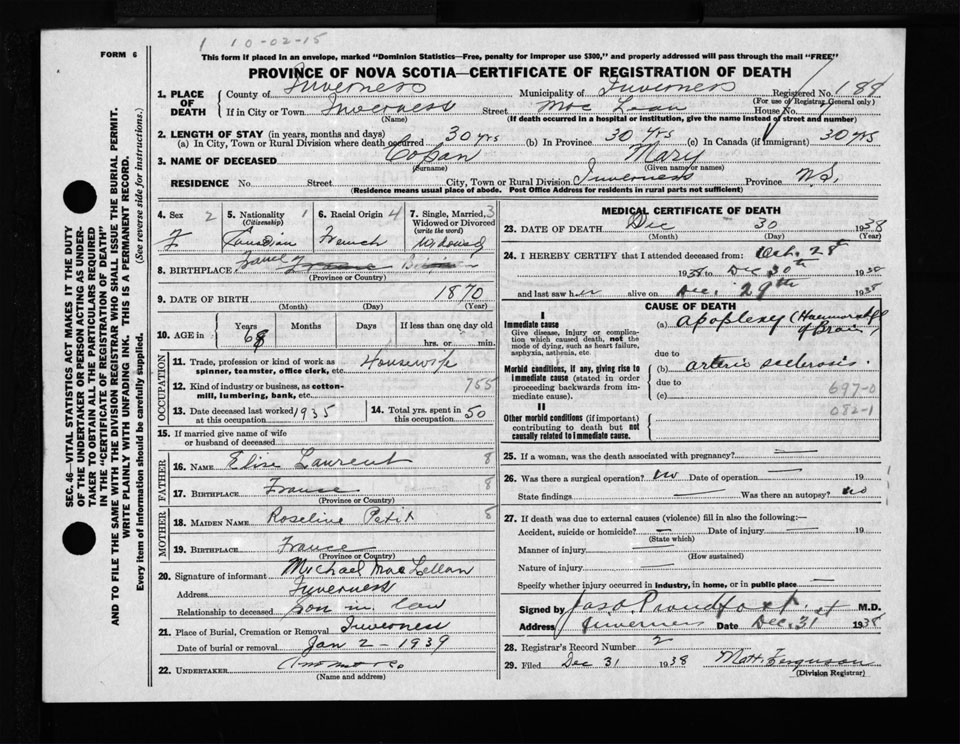 1 10-02-15
FORM 6
This form if placed in an envelope, marked "Dominion Statistics—Free, penalty for improper use $300," and properly addressed will pass through the mail "FREE"
PROVINCE OF NOVA SCOTIA—CERTIFICATE OF REGISTRATION OF DEATH
SEC. 46—VITAL STATISTICS ACT MAKES IT THE DUTY
OF THE UNDERTAKER OR PERSON ACTING AS UNDER-
TAKER TO OBTAIN ALL THE PARTICULARS REQUIRED
IN THE "CERTIFICATE OF REGISTRATION OF DEATH"
AND TO FILE THE SAME WITH THE DIVISION REGISTRAR WHO SHALL ISSUE THE BURIAL PERMIT.
WRITE PLAINLY WITH UNFADING INK. THIS IS A PERMANENT RECORD.
Every item of information should be carefully supplied. (See reverse side for instructions.)
1. PLACE OF DEATH County of Inverness Municipality of Inverness Registered No. 188
(For use of Registrar General only)
If in City or Town Inverness Street Mac Lean House No.
(Name) (If death occurred in a hospital or institution, give the name instead of street and number)
2. LENGTH OF STAY (in years, months and days)
(a) In City, Town or Rural Division where death occurred 30 yrs (b) In Province 30 yrs (c) In Canada (if immigrant) 30 yrs
3. NAME OF DECEASED Copan Mary
(Surname) (Given name or names)
RESIDENCE No. Street City, Town or Rural Division Inverness Province N.S.
(Residence means usual place of abode. Post Office Address for residents in rural parts not sufficient)
4. Sex 2 5. Nationality 1 6. Racial Origin 4 7. Single, Married, 3
(Citizenship) Widowed or Divorced
(write the word)
F Canadian French Widowed
8. BIRTHPLACE France
(Province or Country)
9. DATE OF BIRTH 1870
(Month) (Day) (Year)
10. AGE in Years Months Days If less than one day old
68 hrs. or min.
OCCUPATION
11. Trade, profession or kind of work as
spinner, teamster, office clerk, etc. Housewife
12. Kind of industry or business, as cotton-
mill, lumbering, bank, etc. 755
13. Date deceased last worked
at this occupation 1935
14. Total yrs. spent in
this occupation 50
15. If married give name of wife
or husband of deceased
FATHER
16. NAME Elise Laurent 8
17. BIRTHPLACE France 8
(Province or Country)
MOTHER
18. MAIDEN NAME Roseline Petit 5
19. BIRTHPLACE France
(Province or Country)
20. Signature of informant Michael MacLellan
Address Inverness
Relationship to deceased Son in law
21. Place of Burial, Cremation or Removal Inverness
Date of burial or removal Jan 2 - 1939
22. UNDERTAKER
(Name and address)
MEDICAL CERTIFICATE OF DEATH
23. DATE OF DEATH Dec 30 1938
(Month) (Day) (Year)
24. I HEREBY CERTIFY that I attended deceased from: Oct. 28
1938 to Dec 30th 1938
and last saw her alive on Dec. 29th 1938
CAUSE OF DEATH
I
Immediate cause
Give disease, injury or complica-
tion which caused death, not the
mode of dying, such as heart failure,
asphyxia, asthenia, etc.
(a) apoplexy (Haemorrhage of Brain)
due to
Morbid conditions, if any, giving rise to
immediate cause (stated in order
proceeding backwards from im-
mediate cause).
(b) arterio sclerosis.
due to
(c) 697-0
082-1
II
Other morbid conditions (if important)
contributing to death but not
causally related to immediate cause.
25. If a woman, was the death associated with pregnancy? —
26. Was there a surgical operation? no Date of operation — 19
State findings — Was there an autopsy? no
27. If death was due to external causes (violence) fill in also the following:—
Accident, suicide or homicide? — Date of injury — 19
(State which)
Manner of injury —
(How sustained)
Nature of injury —
Specify whether injury occurred in industry, in home, or in public place —
Signed by Jas. A. Proudfoot M.D.
Address Inverness Date Dec. 31 1938
28. Registrar's Record Number 2
29. Filed Dec 31 1938 Matt. Ferguson
(Division Registrar)